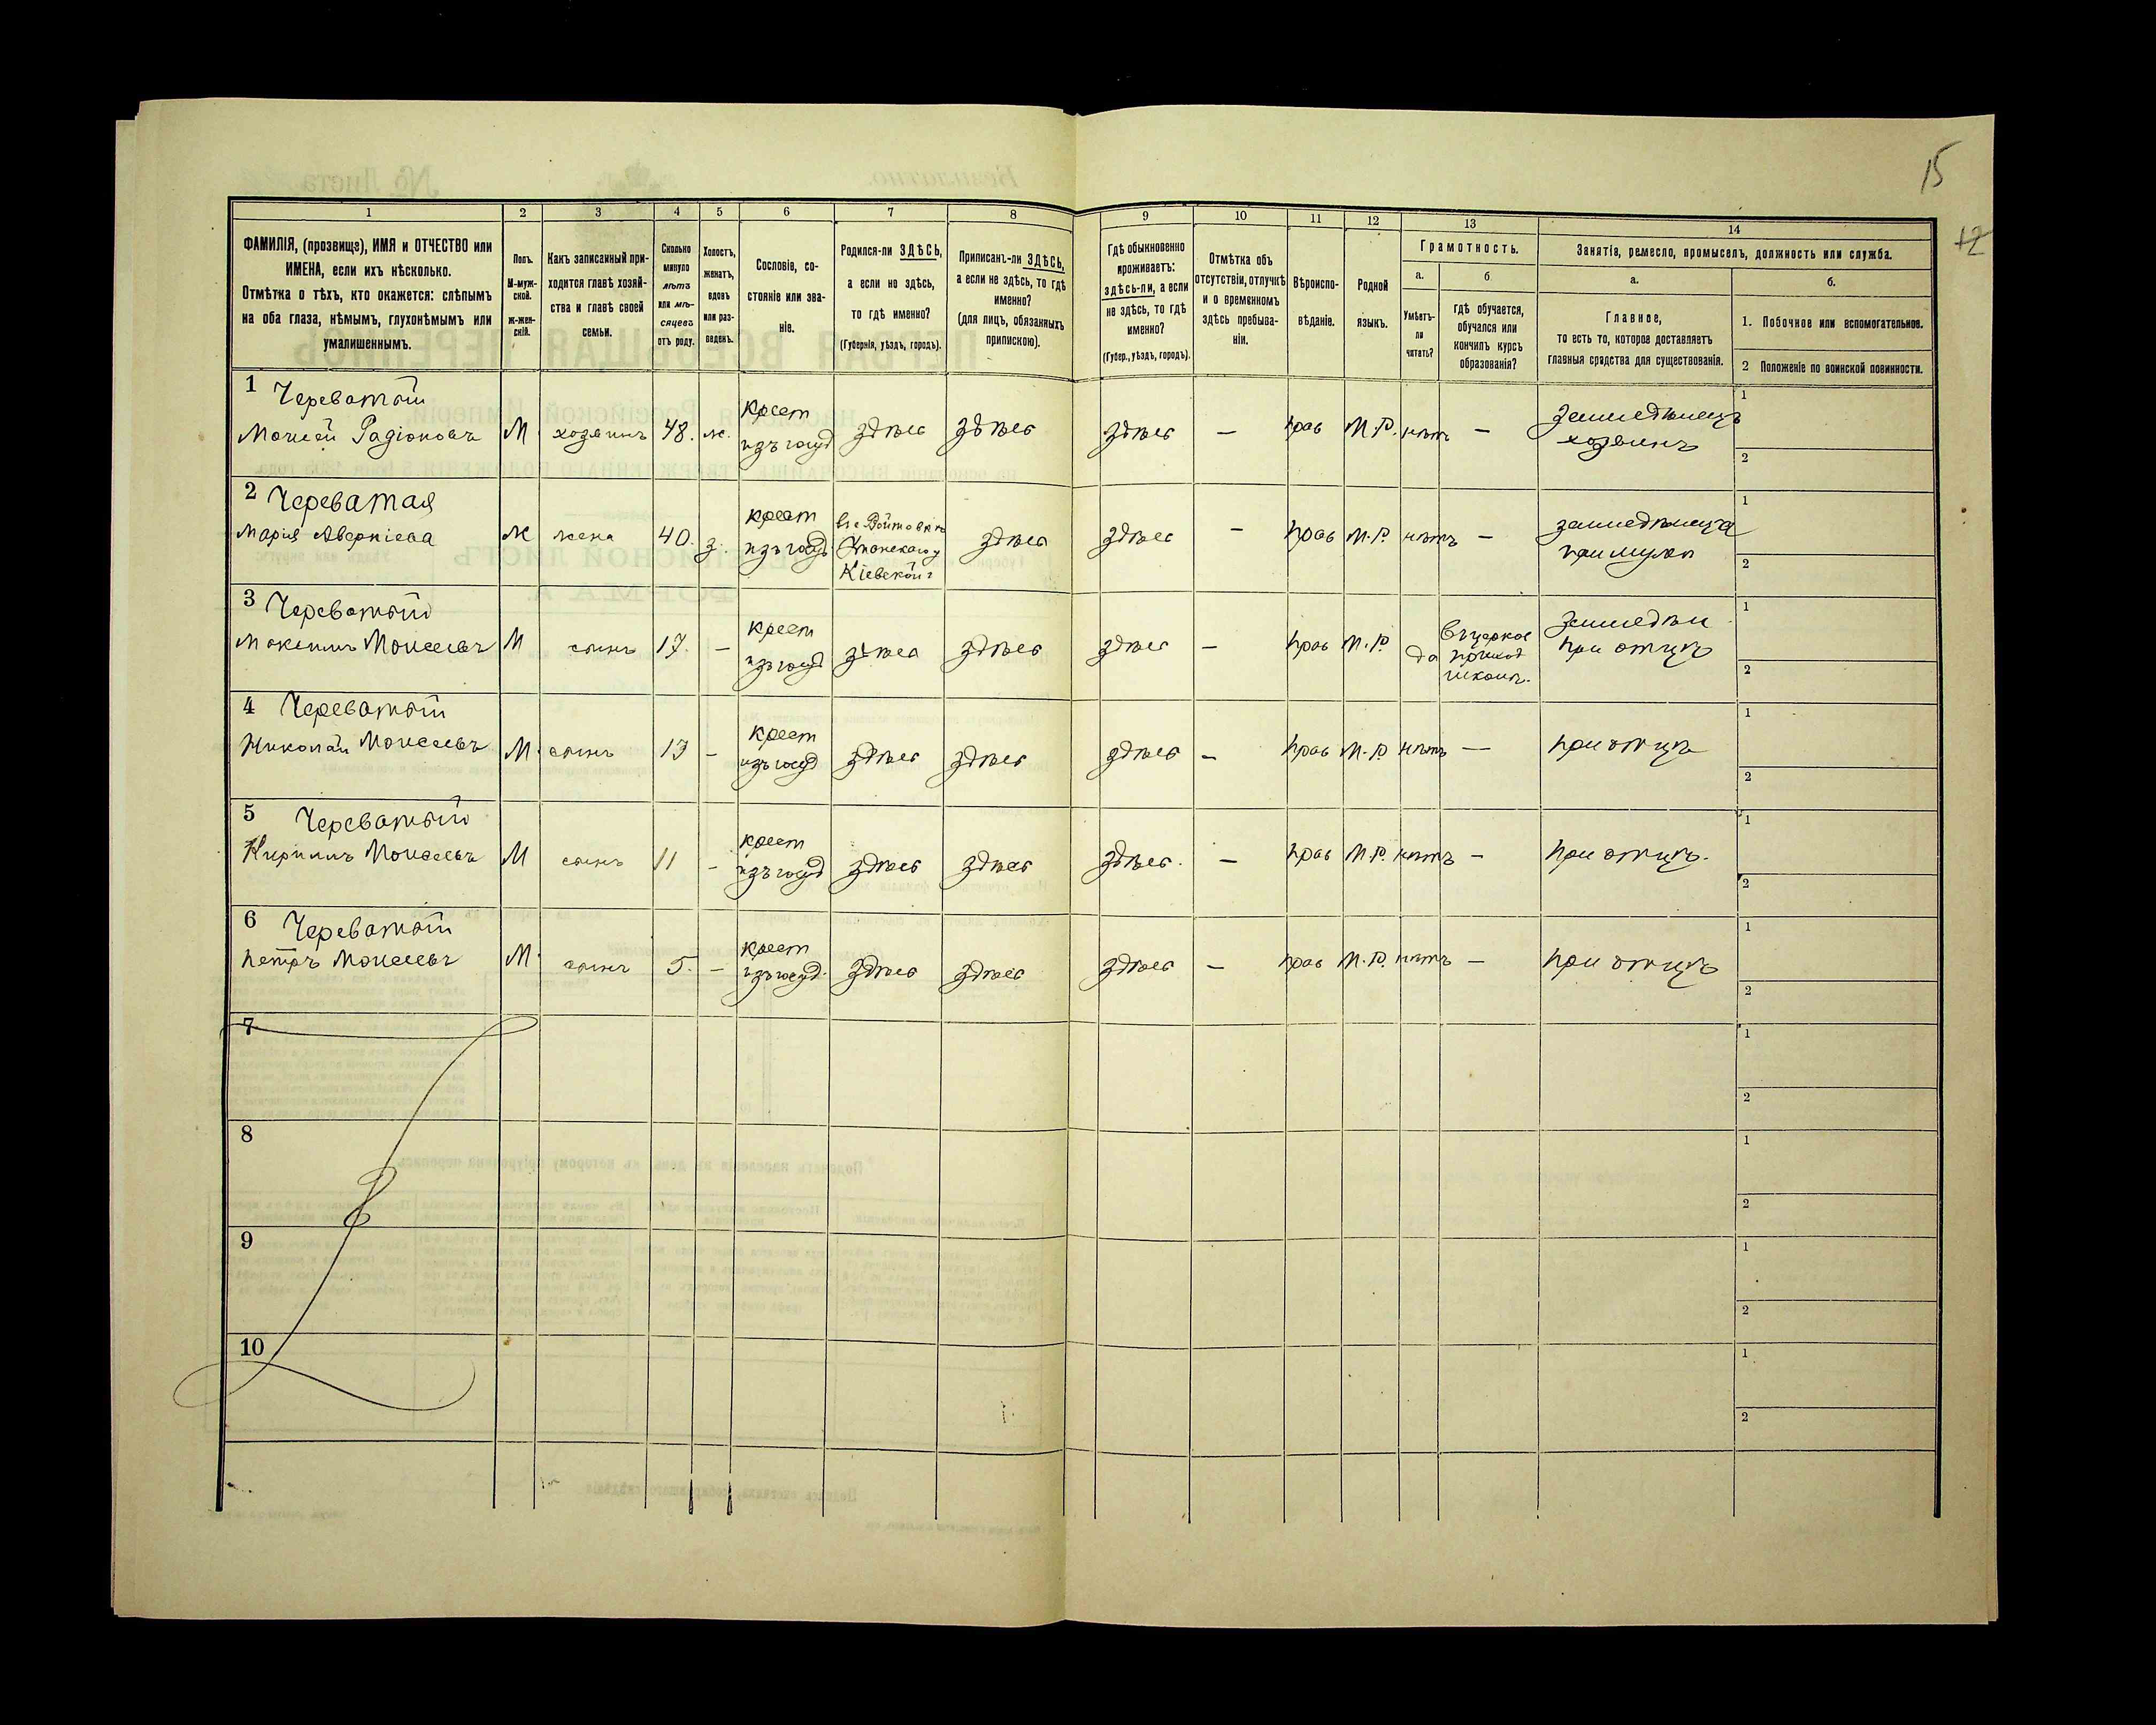 15
12
1 2 3 4 5 6 7 8 9 10 11 12 13 14
ФАМИЛІЯ, (прозвище), ИМЯ и ОТЧЕСТВО или
ИМЕНА, если ихъ нѣсколько.
Отмѣтка о тѣхъ, кто окажется: слѣпымъ
на оба глаза, нѣмымъ, глухонѣмымъ или
умалишеннымъ.
Полъ.
М-муж-
ской.
ж-жен-
скій.
Какъ записанный при-
ходится главѣ хозяй-
ства и главѣ своей
семьи.
Сколько
минуло
лѣтъ
или мѣ-
сяцевъ
отъ роду.
Холостъ,
женатъ,
вдовъ
или раз-
веденъ.
Сословіе, со-
стояніе или зва-
ніе.
Родился-ли ЗДѢСЬ,
а если не здѣсь,
то гдѣ именно?
(Губернія, уѣздъ, городъ).
Приписанъ-ли ЗДѢСЬ,
а если не здѣсь, то гдѣ
именно?
(для лицъ, обязанныхъ
припискою).
Гдѣ обыкновенно
проживаетъ:
здѣсь-ли, а если
не здѣсь, то гдѣ
именно?
(Губер., уѣздъ, городъ).
Отмѣтка объ
отсутствіи, отлучкѣ
и о временномъ
здѣсь пребыва-
ніи.
Вѣроиспо-
вѣданіе.
Родной
языкъ.
Грамотность.
а.
Умѣетъ-
ли
читать?
б
гдѣ обучается,
обучался или
кончилъ курсъ
образованія?
Занятія, ремесло, промыселъ, должность или служба.
а.
Главное,
то есть то, которое доставляетъ
главныя средства для существованія.
б.
1. Побочное или вспомогательное.
2 Положеніе по воинской повинности.
1 Череватый
Моисей Радіоновъ М хозяинъ 48. ж. крест изъ госуд здѣсь здѣсь здѣсь — прав М.Р. нѣтъ — земледѣлецъ хозяинъ 1 2
2 Череватая
Марія Аверкіева ж жена 40. з. крест изъ госуд Уманскаго у Кіевской г здѣсь здѣсь — прав М.Р. нѣтъ — земледѣлица при мужѣ 1 2
3 Череватый
Максимъ Моисеевъ М сынъ 17. — крест изъ госуд здѣсь здѣсь здѣсь — прав М.Р. да въ церков приход школѣ. земледѣл при отцѣ 1 2
4 Череватый
Николай Моисеевъ М. сынъ 13 — крест изъ госуд здѣсь здѣсь здѣсь — прав М.Р. нѣтъ — при отцѣ 1 2
5 Череватый
Кириллъ Моисеевъ М сынъ 11 — крест изъ госуд здѣсь здѣсь здѣсь. — прав М.Р. нѣтъ — при отцѣ. 1 2
6 Череватый
Петръ Моисеевъ М. сынъ 5. — крест изъ госуд. здѣсь здѣсь здѣсь — прав М.Р. нѣтъ — при отцѣ 1 2
7 1 2
8 1 2
9 1 2
10 1 2